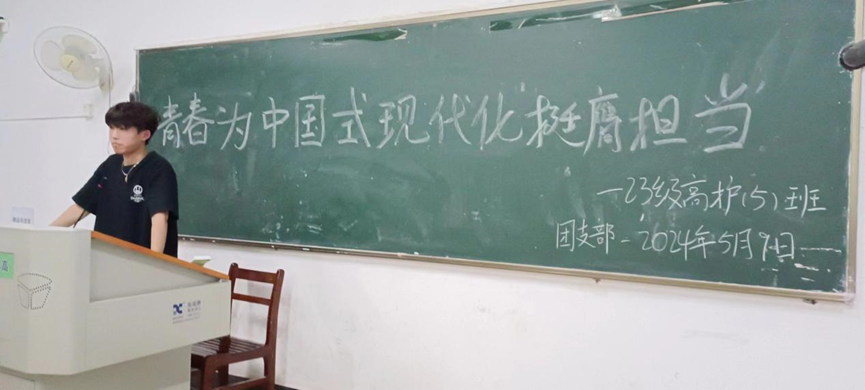 青春为中国式现代化挺膺担当
—23级高护(5)班
团支部-2024年5月9日